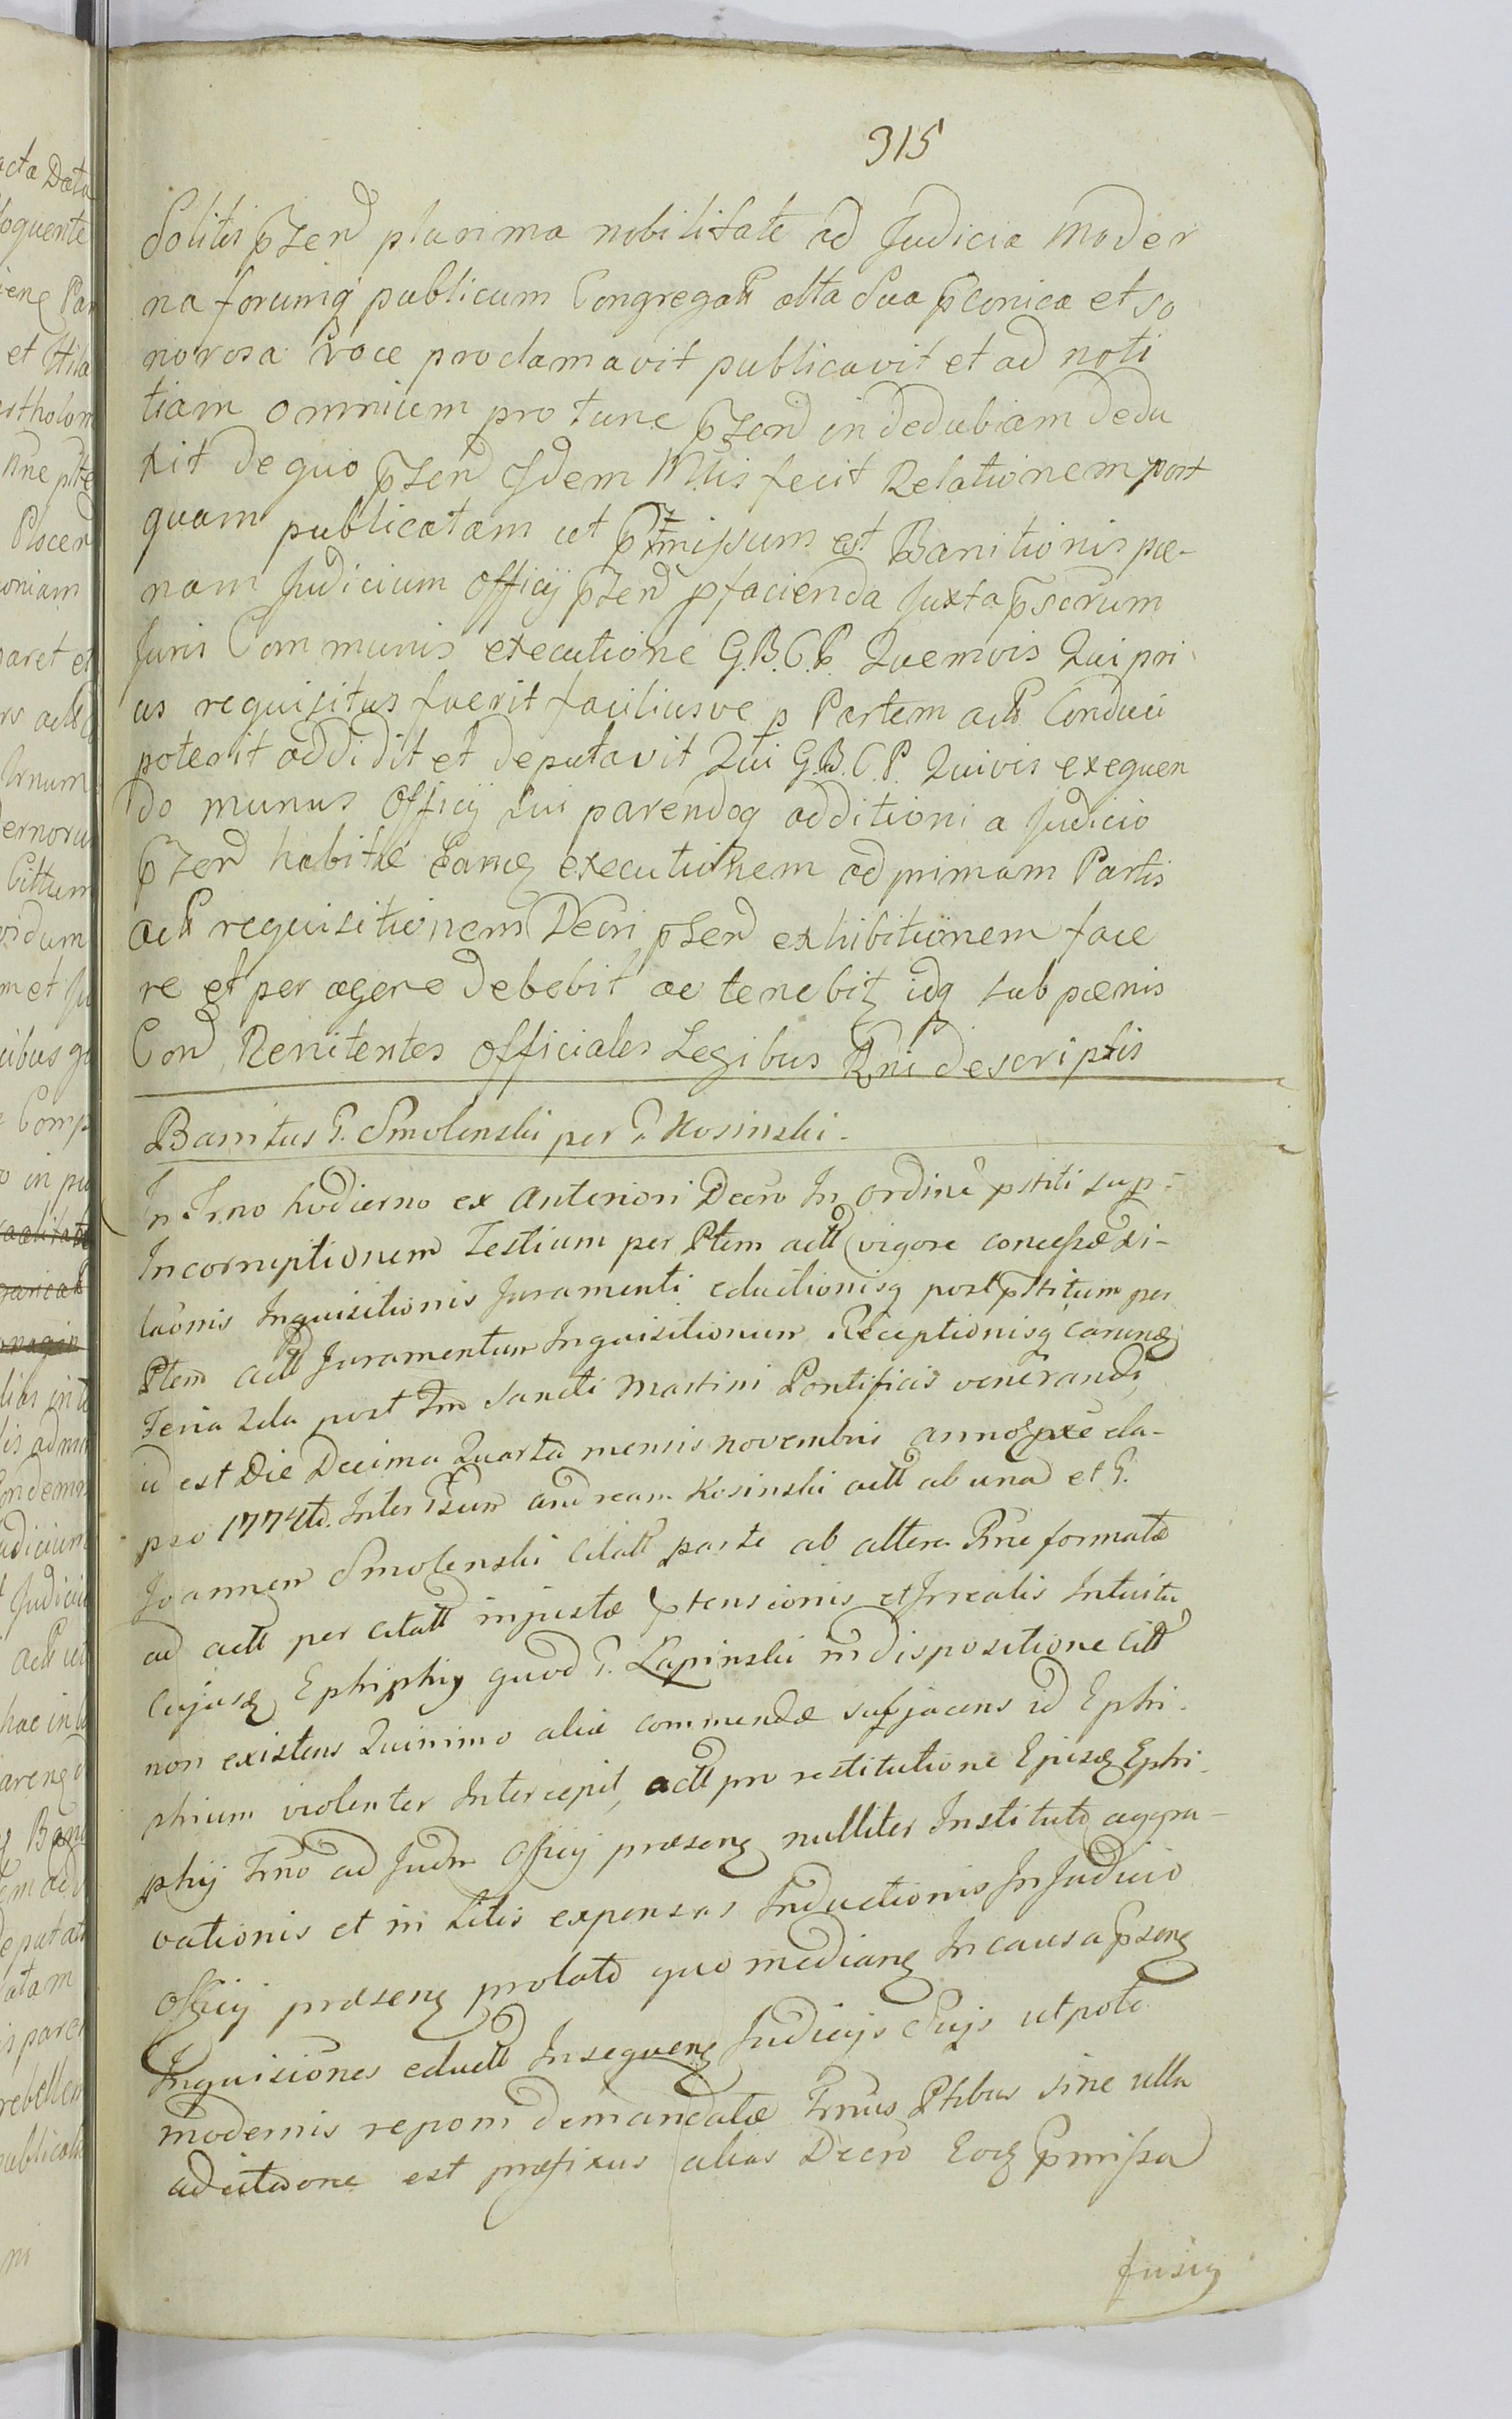 315
Solitis pzend plurima nobilitate ad Judicia moder
na forumq publicum Congregatt alta sua pconica et so
norosa voce proclamavit publicavit et ad noti
tiam omnium pro tunc pzend indedubiam dedu
xit de quo pzend Isdem Mlis fecit Relationem post
quam publicatam ut pmissum est Banitionis pæ-
nam Judicium Officij pzend pfacienda Juxta pscrum
Juris Communis executione G.B.C.P. Quemvis Qui pri
us requisitus fuerit faciliusve p Partem actt Conduci
poterit addidit et deputavit Qui G.B.C.P. Quivis exequen
do munus Officij sui parendoq additioni a Judicio
pzend habitæ Eamq executionem ad primam Partis
actt requisitionem Decri pzend exhibitionem face
re et per agere debebit ac tenebit idq sub pænis
Con Renitentes Officiales Legibus Rni descriptis
Banitus G. Smolenski per G. Kosinski.
In Trno hodierno ex Anteriori Decro In ordine pstiti sup-
Incorruptionem Testium per Ptem actt vigore concessæ Di-
laonis Inquisitionis Juramenti eductionisq post pstitum per
Ptem actt Juramentum Inquisitionum Receptionisq earunq
Feria 2da post Fm Sancti Martini Pontificis venerandi
id est Die Decima Quarta mensis novembris anno pxe ela-
pso 1774to. Inter Gsum Andream Kosinski actt ab una et G.
Joannem Smolenski Citatt parte ab altera Rne formatæ
ad actt per citatt injustæ ptensionis et Irrealis Intuitu
Cujusq Ephiphij quod G. Lapinski in dispositione Citt
non existens Quinimo aliæ commendæ subjacens id Ephi-
phium violenter Intercepit, actt pro restitutione Ejusq Ephi-
phij Trno ad Judm Officij præsenq nulliter Instituto aggra-
vationis et in Litis expensas Inductionis In Judicio
Officij præsenq prolato quo medianq In causa psenq
Inquisiones eductt Insequenq Judicijs Suijs utpote
modernis reponi demandatæ Trnus Ptibus sine ulla
adcitatione est præfixus alias Decro Eoq pmissa
fusiq